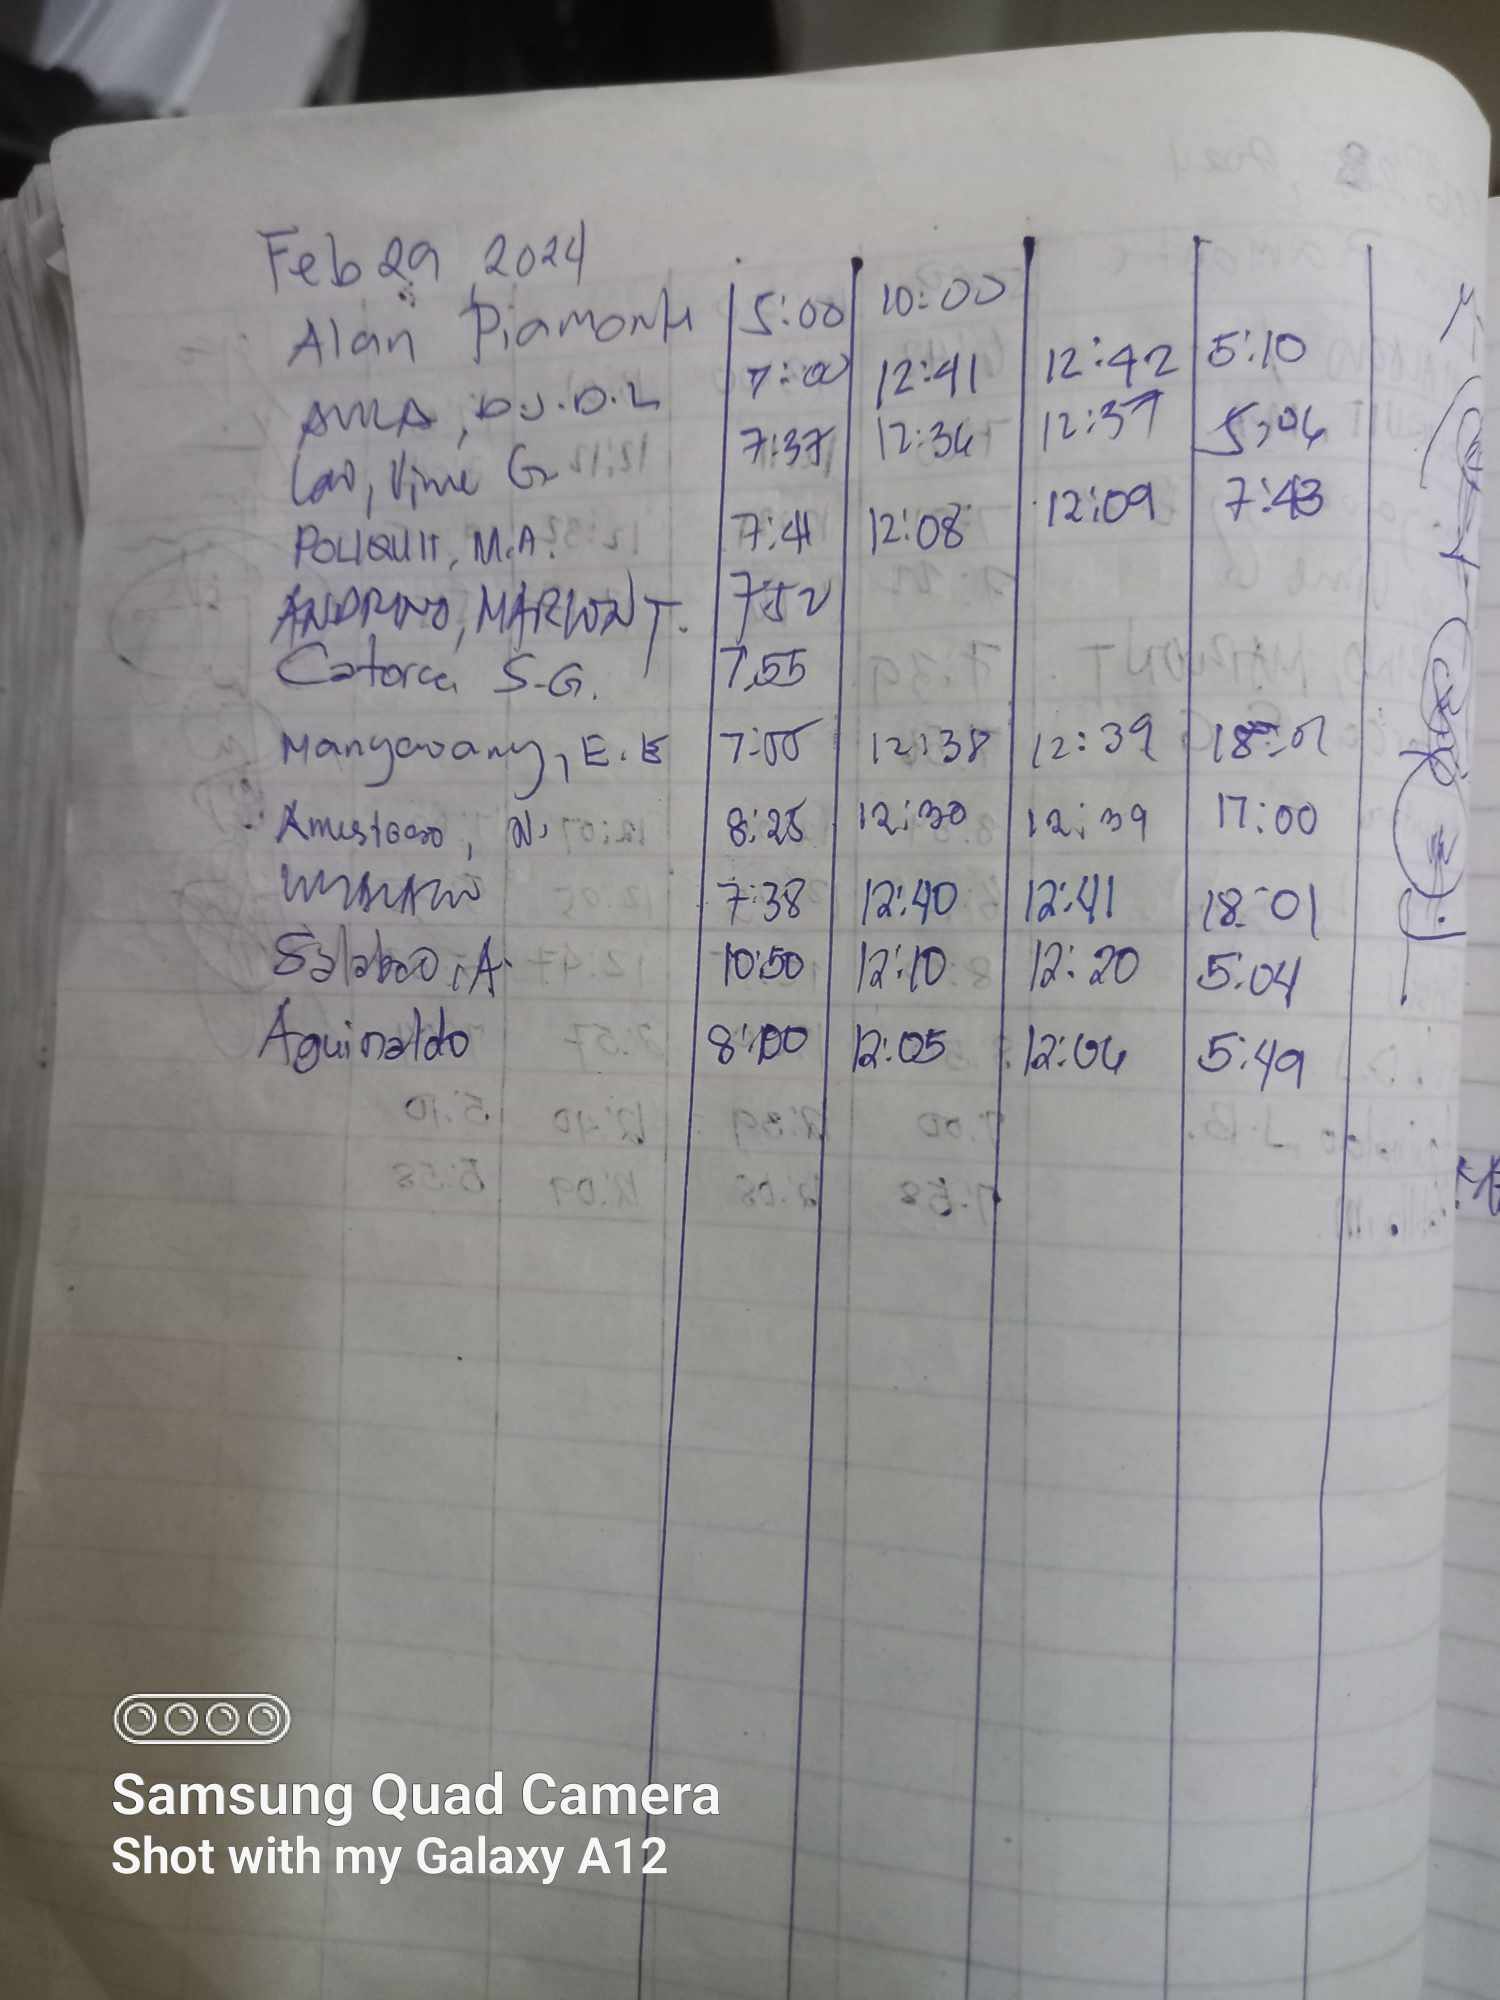 Feb 29, 2024
Alan Piamonte 5:00 10:00
AVILA, D.J.D.L 7:00 12:41 12:42 5:10
Lao, Vime G. 7:37 12:36 12:37 5:06
POLIQUIT, M.A. 7:41 12:08 12:09 7:43
ANDRINO, MARLON T. 7:52
Catorce S.G. 7:55
Mangarang, E.E 7:55 12:38 12:39 18:01
N. 8:25 12:30 12:39 17:00
7:38 12:40 12:41 18:01
Salabao, A. 10:50 12:10 12:20 5:04
Aguinaldo 8:00 12:05 12:06 5:49
Samsung Quad Camera
Shot with my Galaxy A12